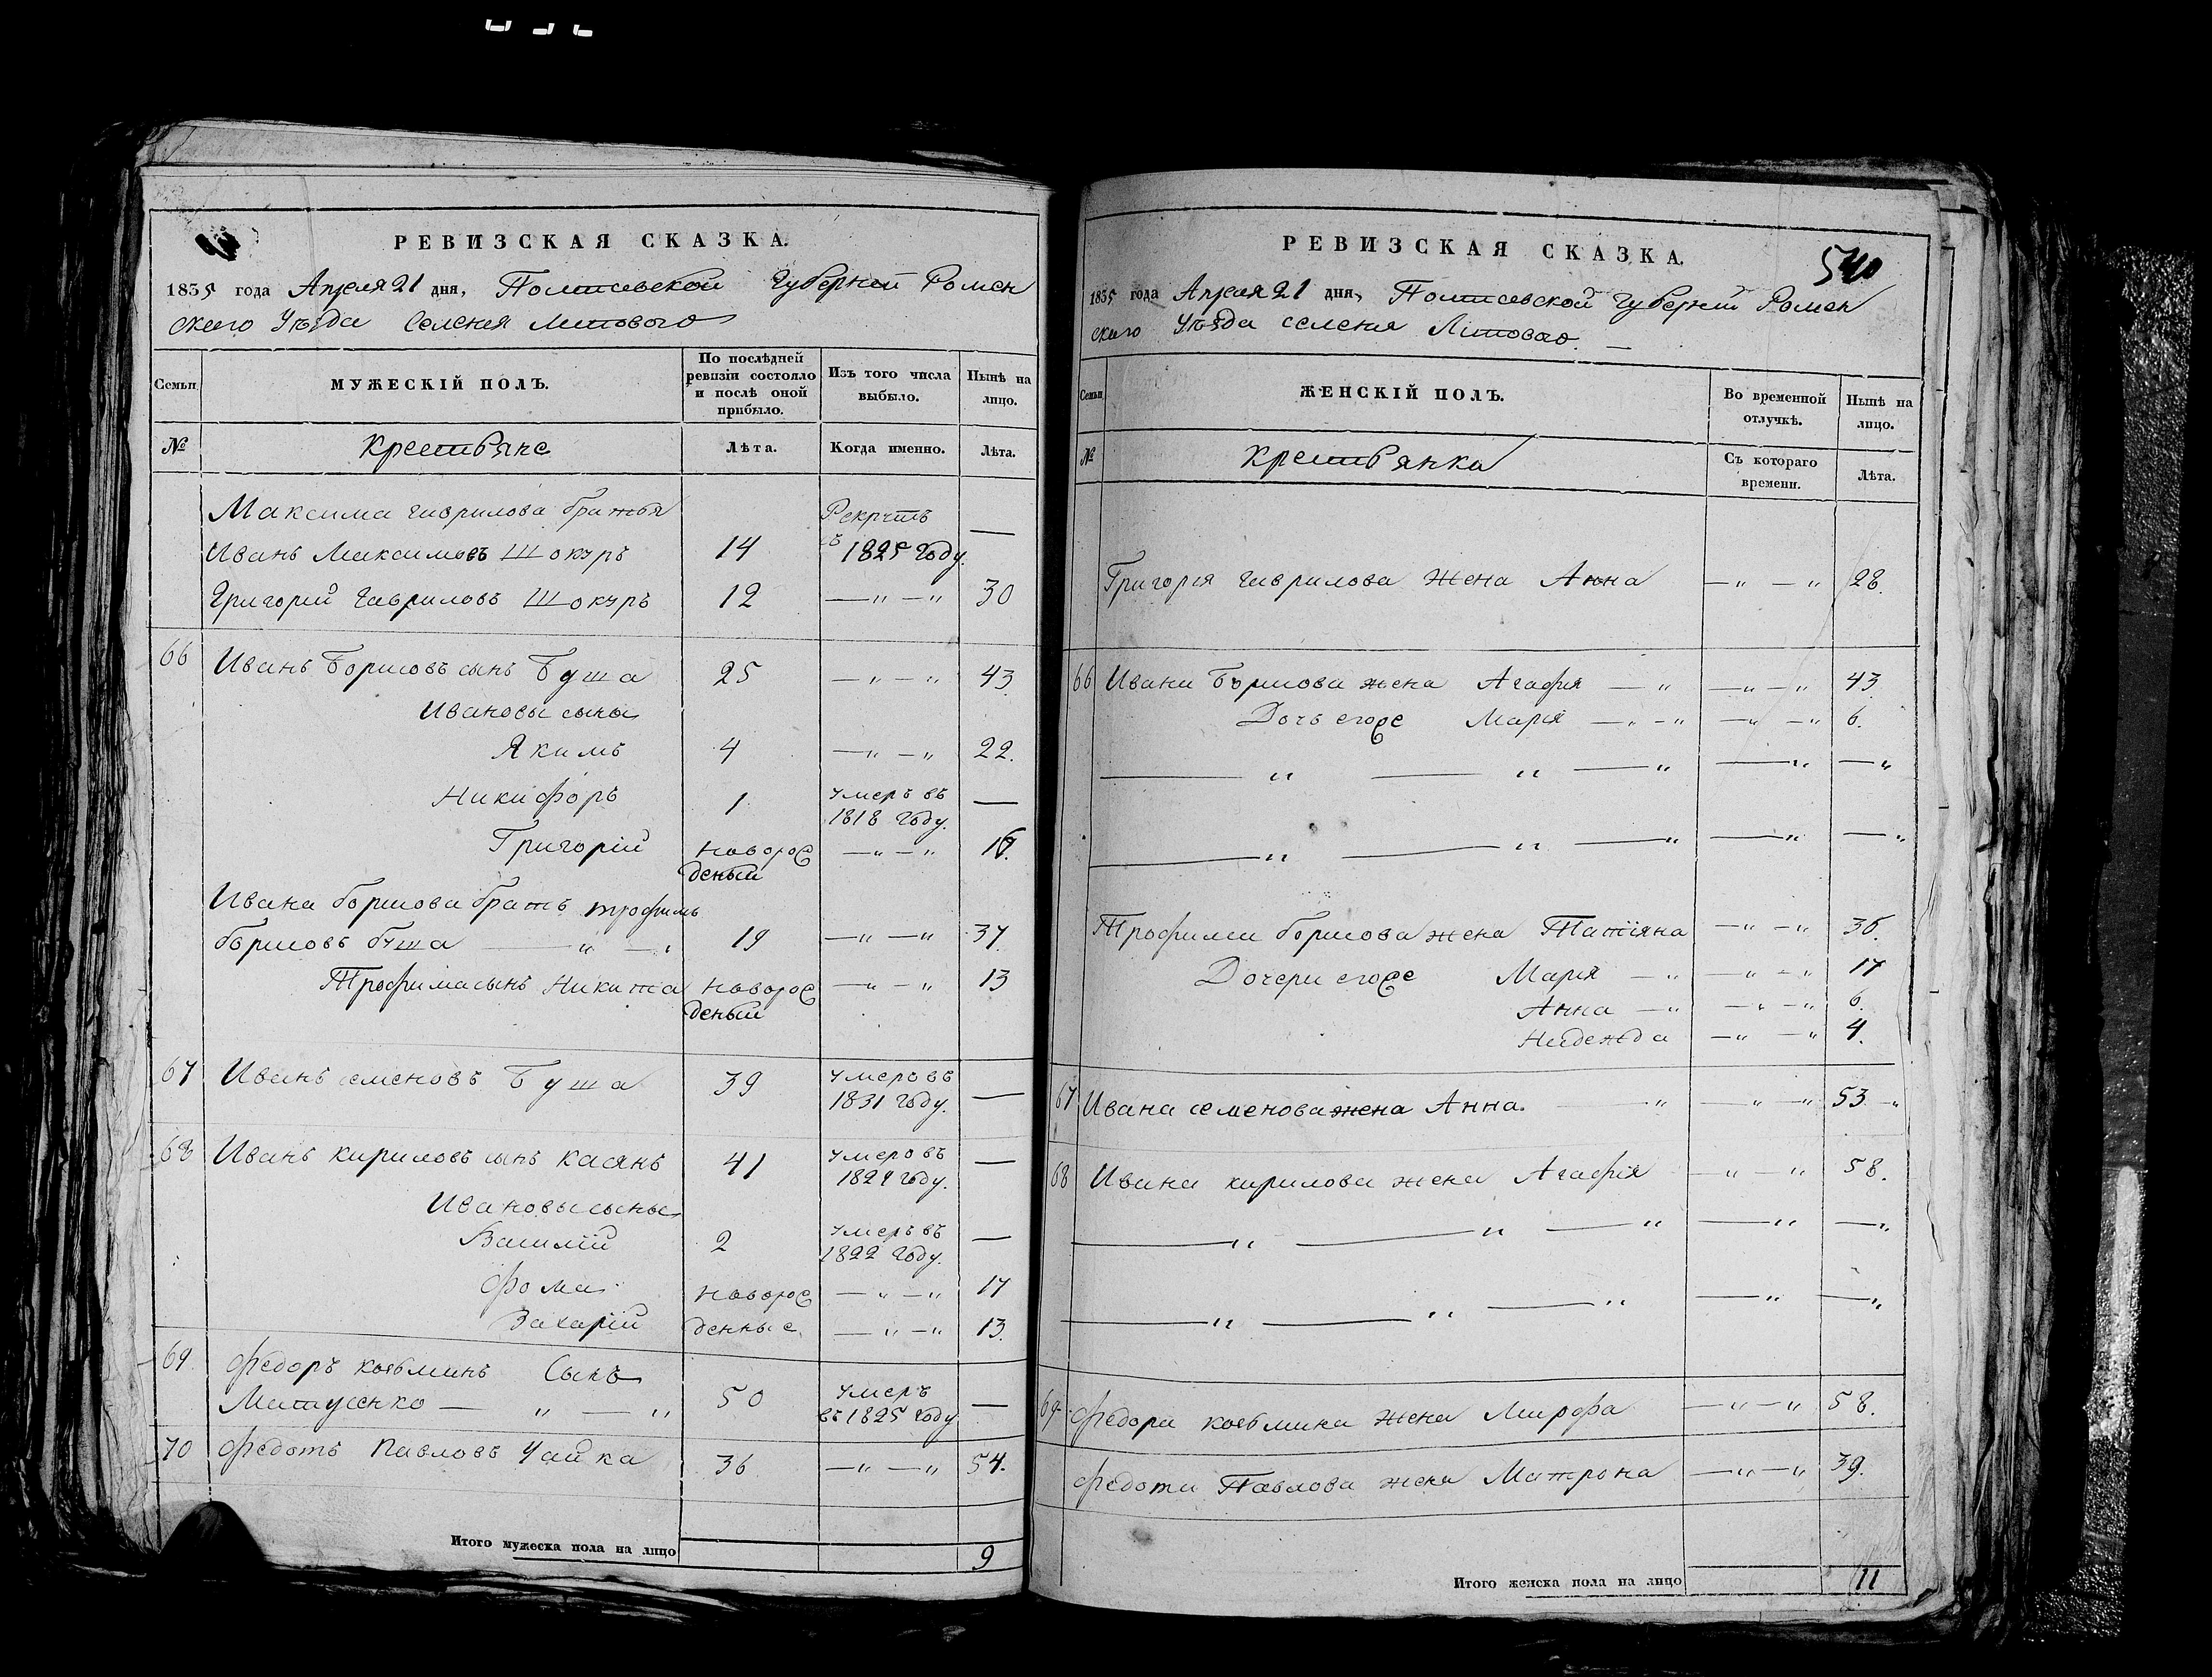 РЕВИЗСКАЯ СКАЗКА.
1835 года Апреля 21 дня, Полтавской Губернии Ромен
ского Уѣзда Селения Липового
Семьи
МУЖЕСКІЙ ПОЛЪ.
По послѣдней ревизіи состояло и послѣ оной прибыло.
Изъ того числа выбыло.
Нынѣ на лицо.
№
Крестьяне
Лѣта.
Когда именно.
Лѣта.
Максима Гаврилова братья
Иванъ Максимовъ Шокуръ 14 Рекрутъ въ 1825 Году. —
Григорий Гавриловъ Шокуръ 12 — „ — „ 30
66 Иванъ Борисовъ сынъ Буша 25 — „ — „ 43
Ивановы сыны
Якимъ 4 — „ — „ 22.
Никифоръ 1 умеръ въ 1818 Году. —
Григорій новорож
деный — „ — „ 16.
Ивана Борисова братъ трофимъ
борисовъ буша — „ — „ 19 — „ — „ 37.
Трофима сынъ Никита новорож
деный — „ — „ 13
67 Иванъ семеновъ Буша 39 умеръ въ 1831 Году. —
68 Иванъ кириловъ сынъ касянъ 41 умеръ въ 1824 году. —
Ивановы сыны
Василій 2 умеръ въ 1822 Году. —
Фома новорож — „ — „ 17
Захарій денные. — „ — „ 13.
69. Федоръ козьминъ Сынъ
Матусенко — „ — „ 50 умеръ въ 1825 Году —
70 Федотъ Павловъ Чайка 36 — „ — „ 54.
Итого мужеска пола на лицо 9
РЕВИЗСКАЯ СКАЗКА.
540
1835 года Апреля 21 дня, Полтавской Губерніи Ромен
ского Уѣзда селения Липоваго. —
Семьи
ЖЕНСКІЙ ПОЛЪ.
Во временной отлучкѣ.
Нынѣ на лицо.
№
Крестьянки
Съ котораго времени.
Лѣта.
Григорія Гаврилова жена Анна — „ — „ 28.
66 Ивана Борисова жена Агафия — „ — „ — „ 43.
Дочь егоже Марія — „ — „ — „ — „ 6.
Трофима борисова жена Татіяна — „ — „ 36.
Дочери егоже Марія — „ — „ — „ 17
Анна — „ — „ — „ 6.
Надежда — „ — „ 4.
67 Ивана семенова жена Анна. — „ — „ — „ 53 „
68 Ивана кирилова жена Агафія — „ — „ 58.
69. Федора козьмина жена Марфа — „ — „ 58.
Федота Павлова жена Матрона — „ — „ 39.
Итого женска пола на лицо 11